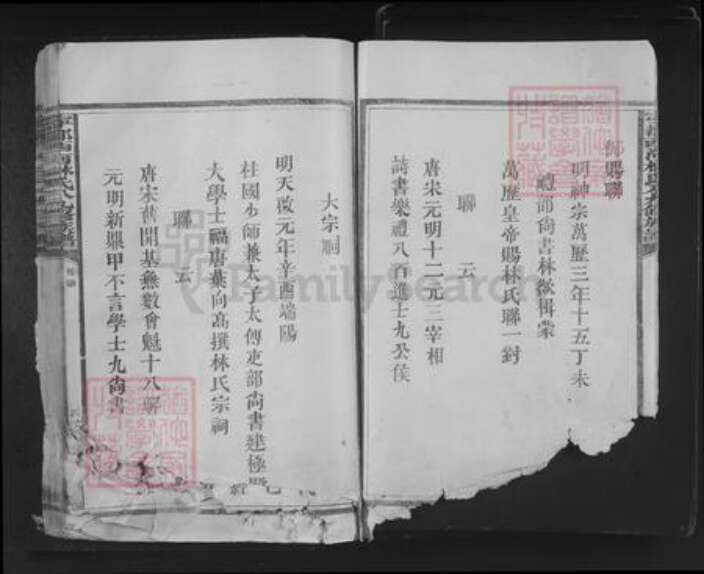 御賜聯
明神宗萬歷三年十五丁未
禮部尚書林欲楫蒙
萬歷皇帝賜林氏聯一對
聯云
唐宋元明十二元三宰相
詩書樂禮八百進士九公侯
大宗祠
明天啟元年辛酉端陽
柱國少師兼太子太傅吏部尚書建極殿
大學士福唐葉向髙撰林氏宗祠
聯云
唐宋舊開基無數會魁十八
元明新鼎甲不言學士九尚書
FamilySearch